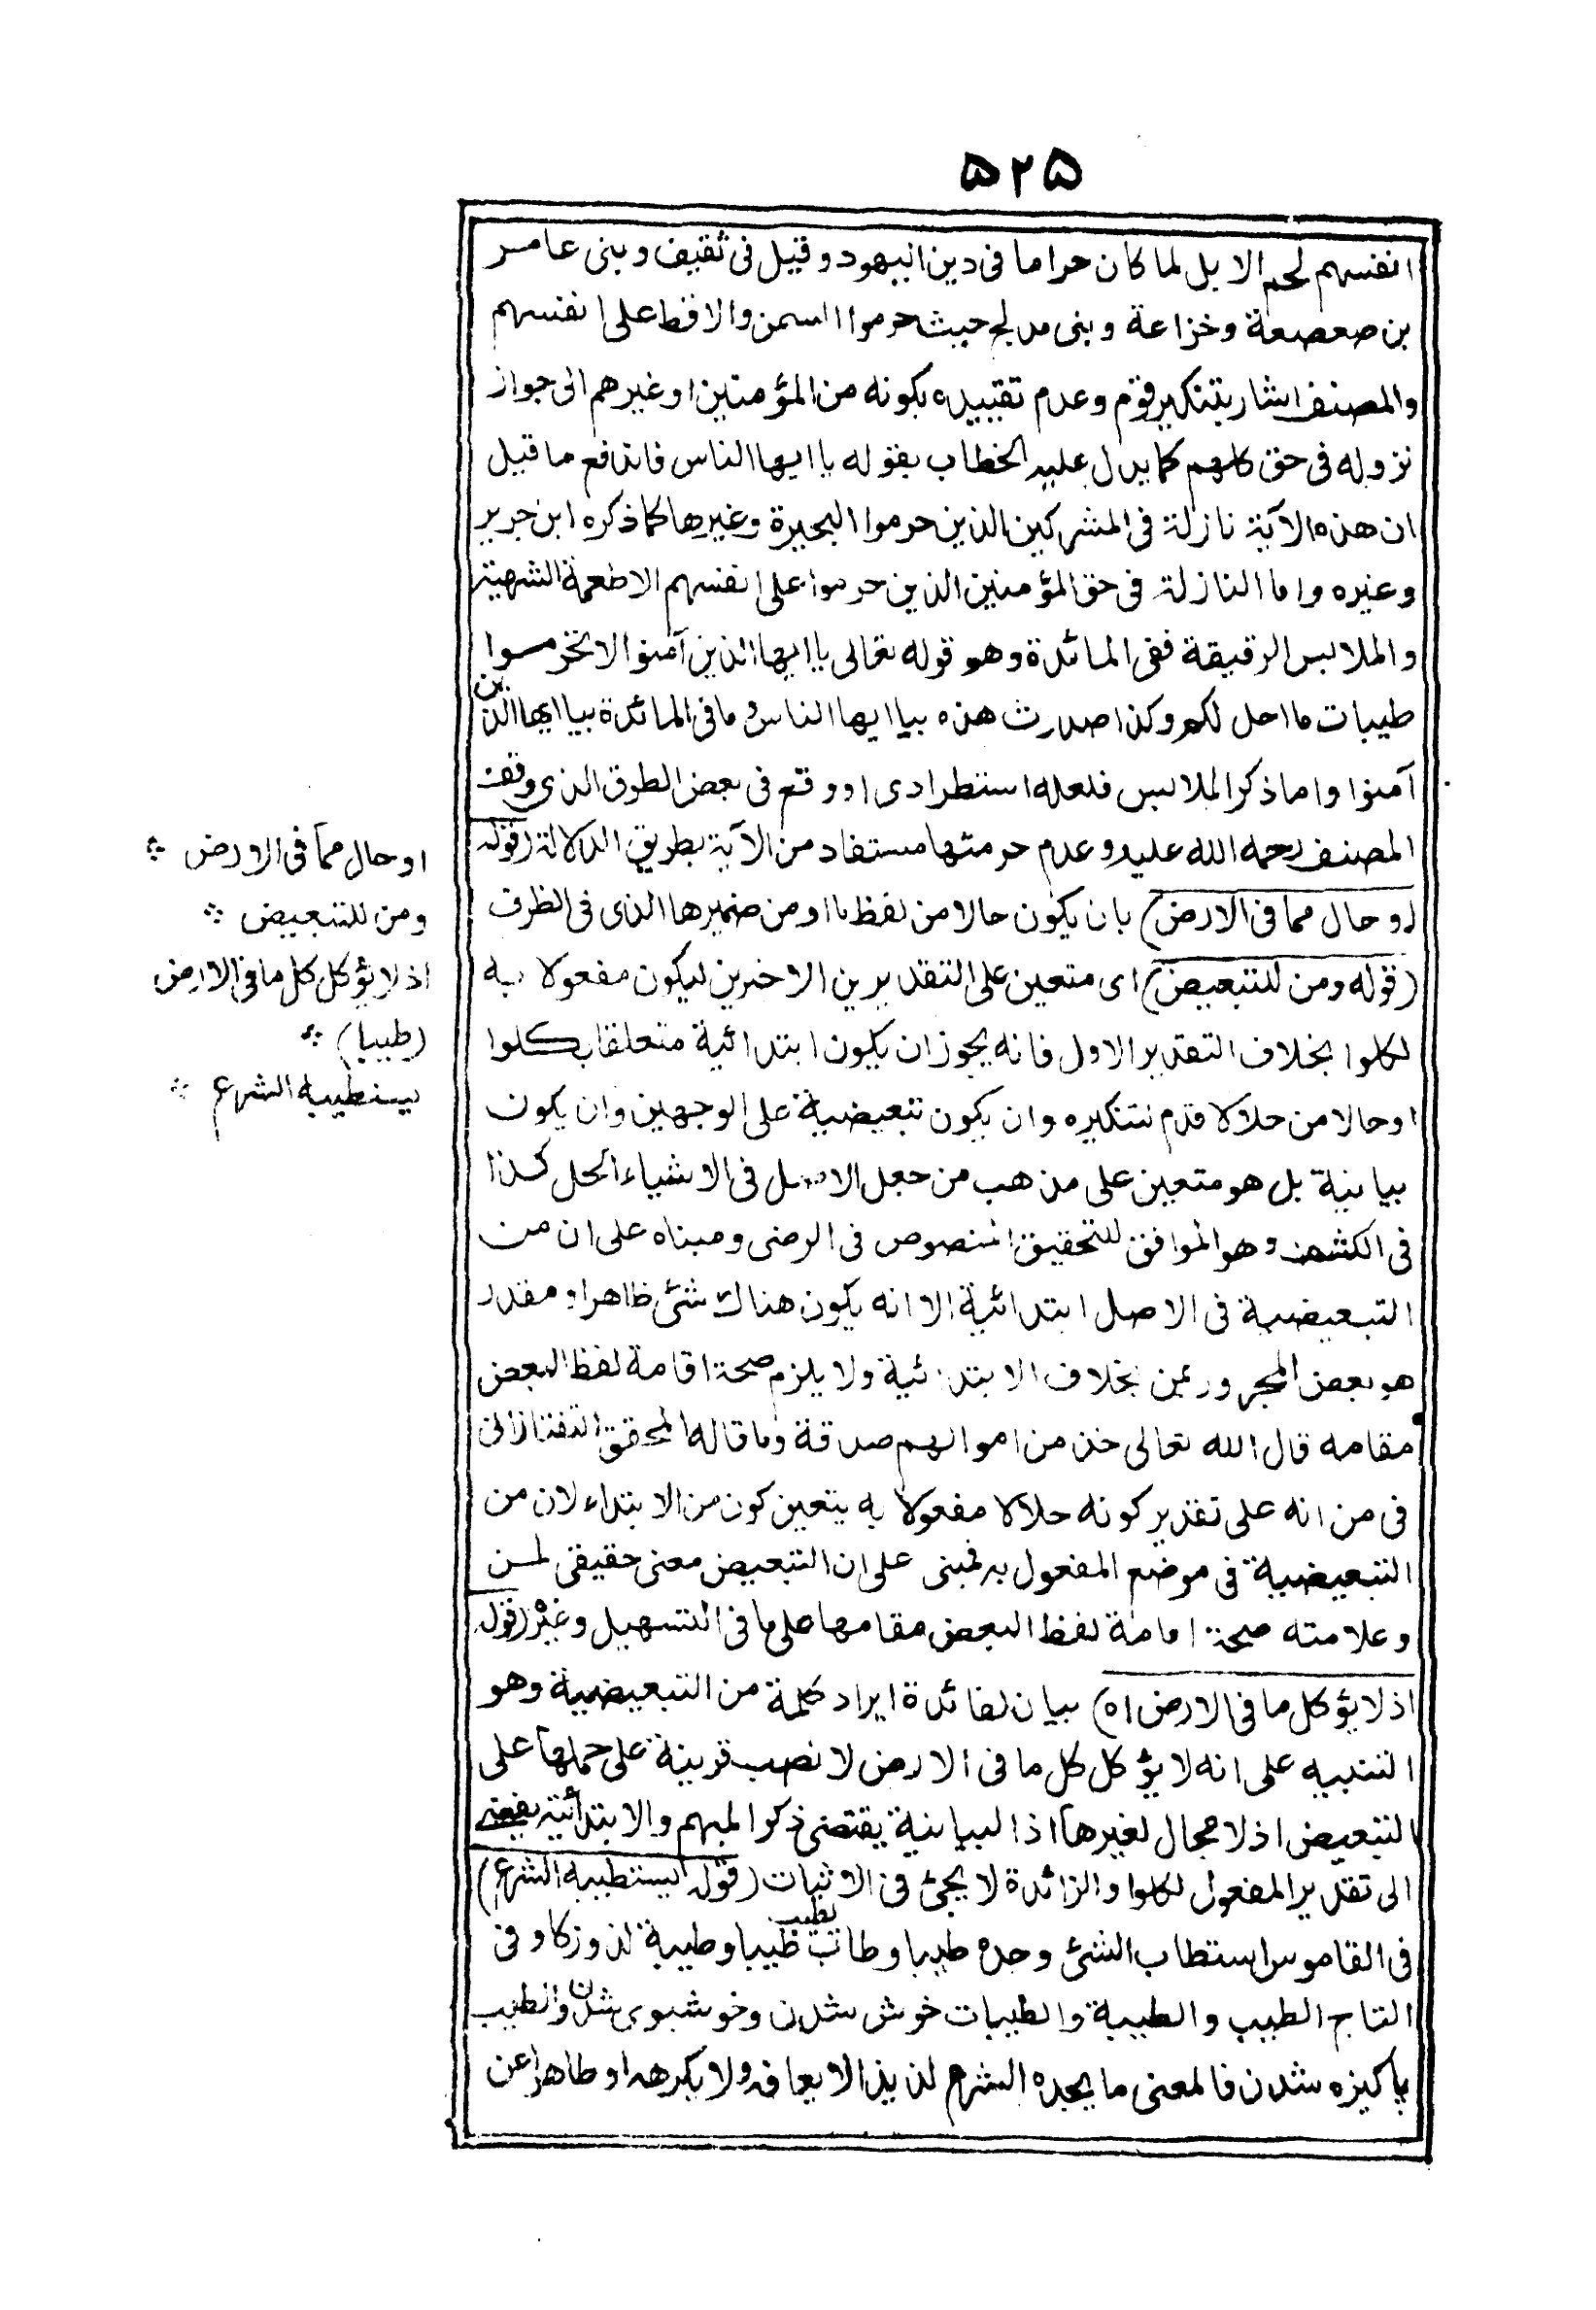 ۵۲۵
انفسهم لحم الابل لما كان حراما فى دين اليهود وقيل فى ثقيف وبنى عامر
بن صعصعة وخزاعة وبنى مدلج حيث حرموا السمن والاقط على انفسهم
والمصنف اشار بتنكير قوم وعدم تقييده بكونه من المؤمنين او غيرهم الى جواز
نزوله فى حق كلهم كما يدل عليه الخطاب بقوله يا ايها الناس فاندفع ما قيل
ان هذه الآية نازلة فى المشركين الذين حرموا البحيرة وغيرها كما ذكره ابن جرير
وغيره واما النازلة فى حق المؤمنين الذين حرموا على انفسهم الاطعمة الشهية
والملابس الرقيقة ففى المائدة وهو قوله تعالى يا ايها الذين آمنوا لا تحرموا
طيبات ما احل لكم وكذا صدرت هذه بيا ايها الناس وما فى المائدة بيا ايها الذين
آمنوا واما ذكر الملابس فلعله استطرادى او وقع فى بعض الطرق الذى وقف
المصنف رحمه الله عليه وعدم حرمتها مستفاد من الآية بطريق الدلالة (قوله
او حال مما فى الارض) بان يكون حالا من لفظ ما او من ضميرها الذى فى الظرف
(قوله ومن للتبعيض) اى متعين على التقديرين الاخيرين ليكون مفعولا به
لكلوا بخلاف التقدير الاول فانه يجوز ان يكون ابتدائية متعلقا بكلوا
او حالا من حلالا قدم لتنكيره وان يكون تبعيضية على الوجهين وان يكون
بيانية بل هو متعين على مذهب من جعل الاصل فى الاشياء الحل كذا
فى الكشف وهو الموافق للتحقيق المنصوص فى الرضى ومبناه على ان من
التبعيضية فى الاصل ابتدائية الا انه يكون هناك شئ ظاهر او مقدر
هو بعض المجرور بمن بخلاف الابتدائية ولا يلزم صحة اقامة لفظ البعض
مقامه قال الله تعالى خذ من اموالهم صدقة وما قاله المحقق التفتازانى
فى من انه على تقدير كونه حلالا مفعولا به يتعين كون من الابتداء لان من
التبعيضية فى موضع المفعول به فمبنى على ان التبعيض معنى حقيقى لمن
وعلامته صحة اقامة لفظ البعض مقامها على ما فى التسهيل وغيره (قوله
اذ لا يؤكل ما فى الارض اه) بيان لفائدة ايراد كلمة من التبعيضية وهو
التنبيه على انه لا يؤكل كل ما فى الارض لا نصب قرينة على حملها على
التبعيض اذ لا مجال لغيرها اذ البيانية يقتضى ذكر المبهم والابتدائية يفضى
الى تقدير المفعول لكلوا والزائدة لا يجئ فى الاثبات (قوله يستطيبه الشرع)
فى القاموس استطاب الشئ وحده طيبا وطاب يطيب طيبا وطيبة لذ وزكا وفى
التاج الطيب والطيبة والطيبات خوش شدن وخوشبوى شدن والطيب
پاكيزه شدن فالمعنى ما يجده الشرع لذيذا لا يعافه ولا يكرهه او طاهرا عن
او حال مما فى الارض
ومن للتبعيض
اذ لا يؤكل كل ما فى الارض
(طيبا)
يستطيبه الشرع